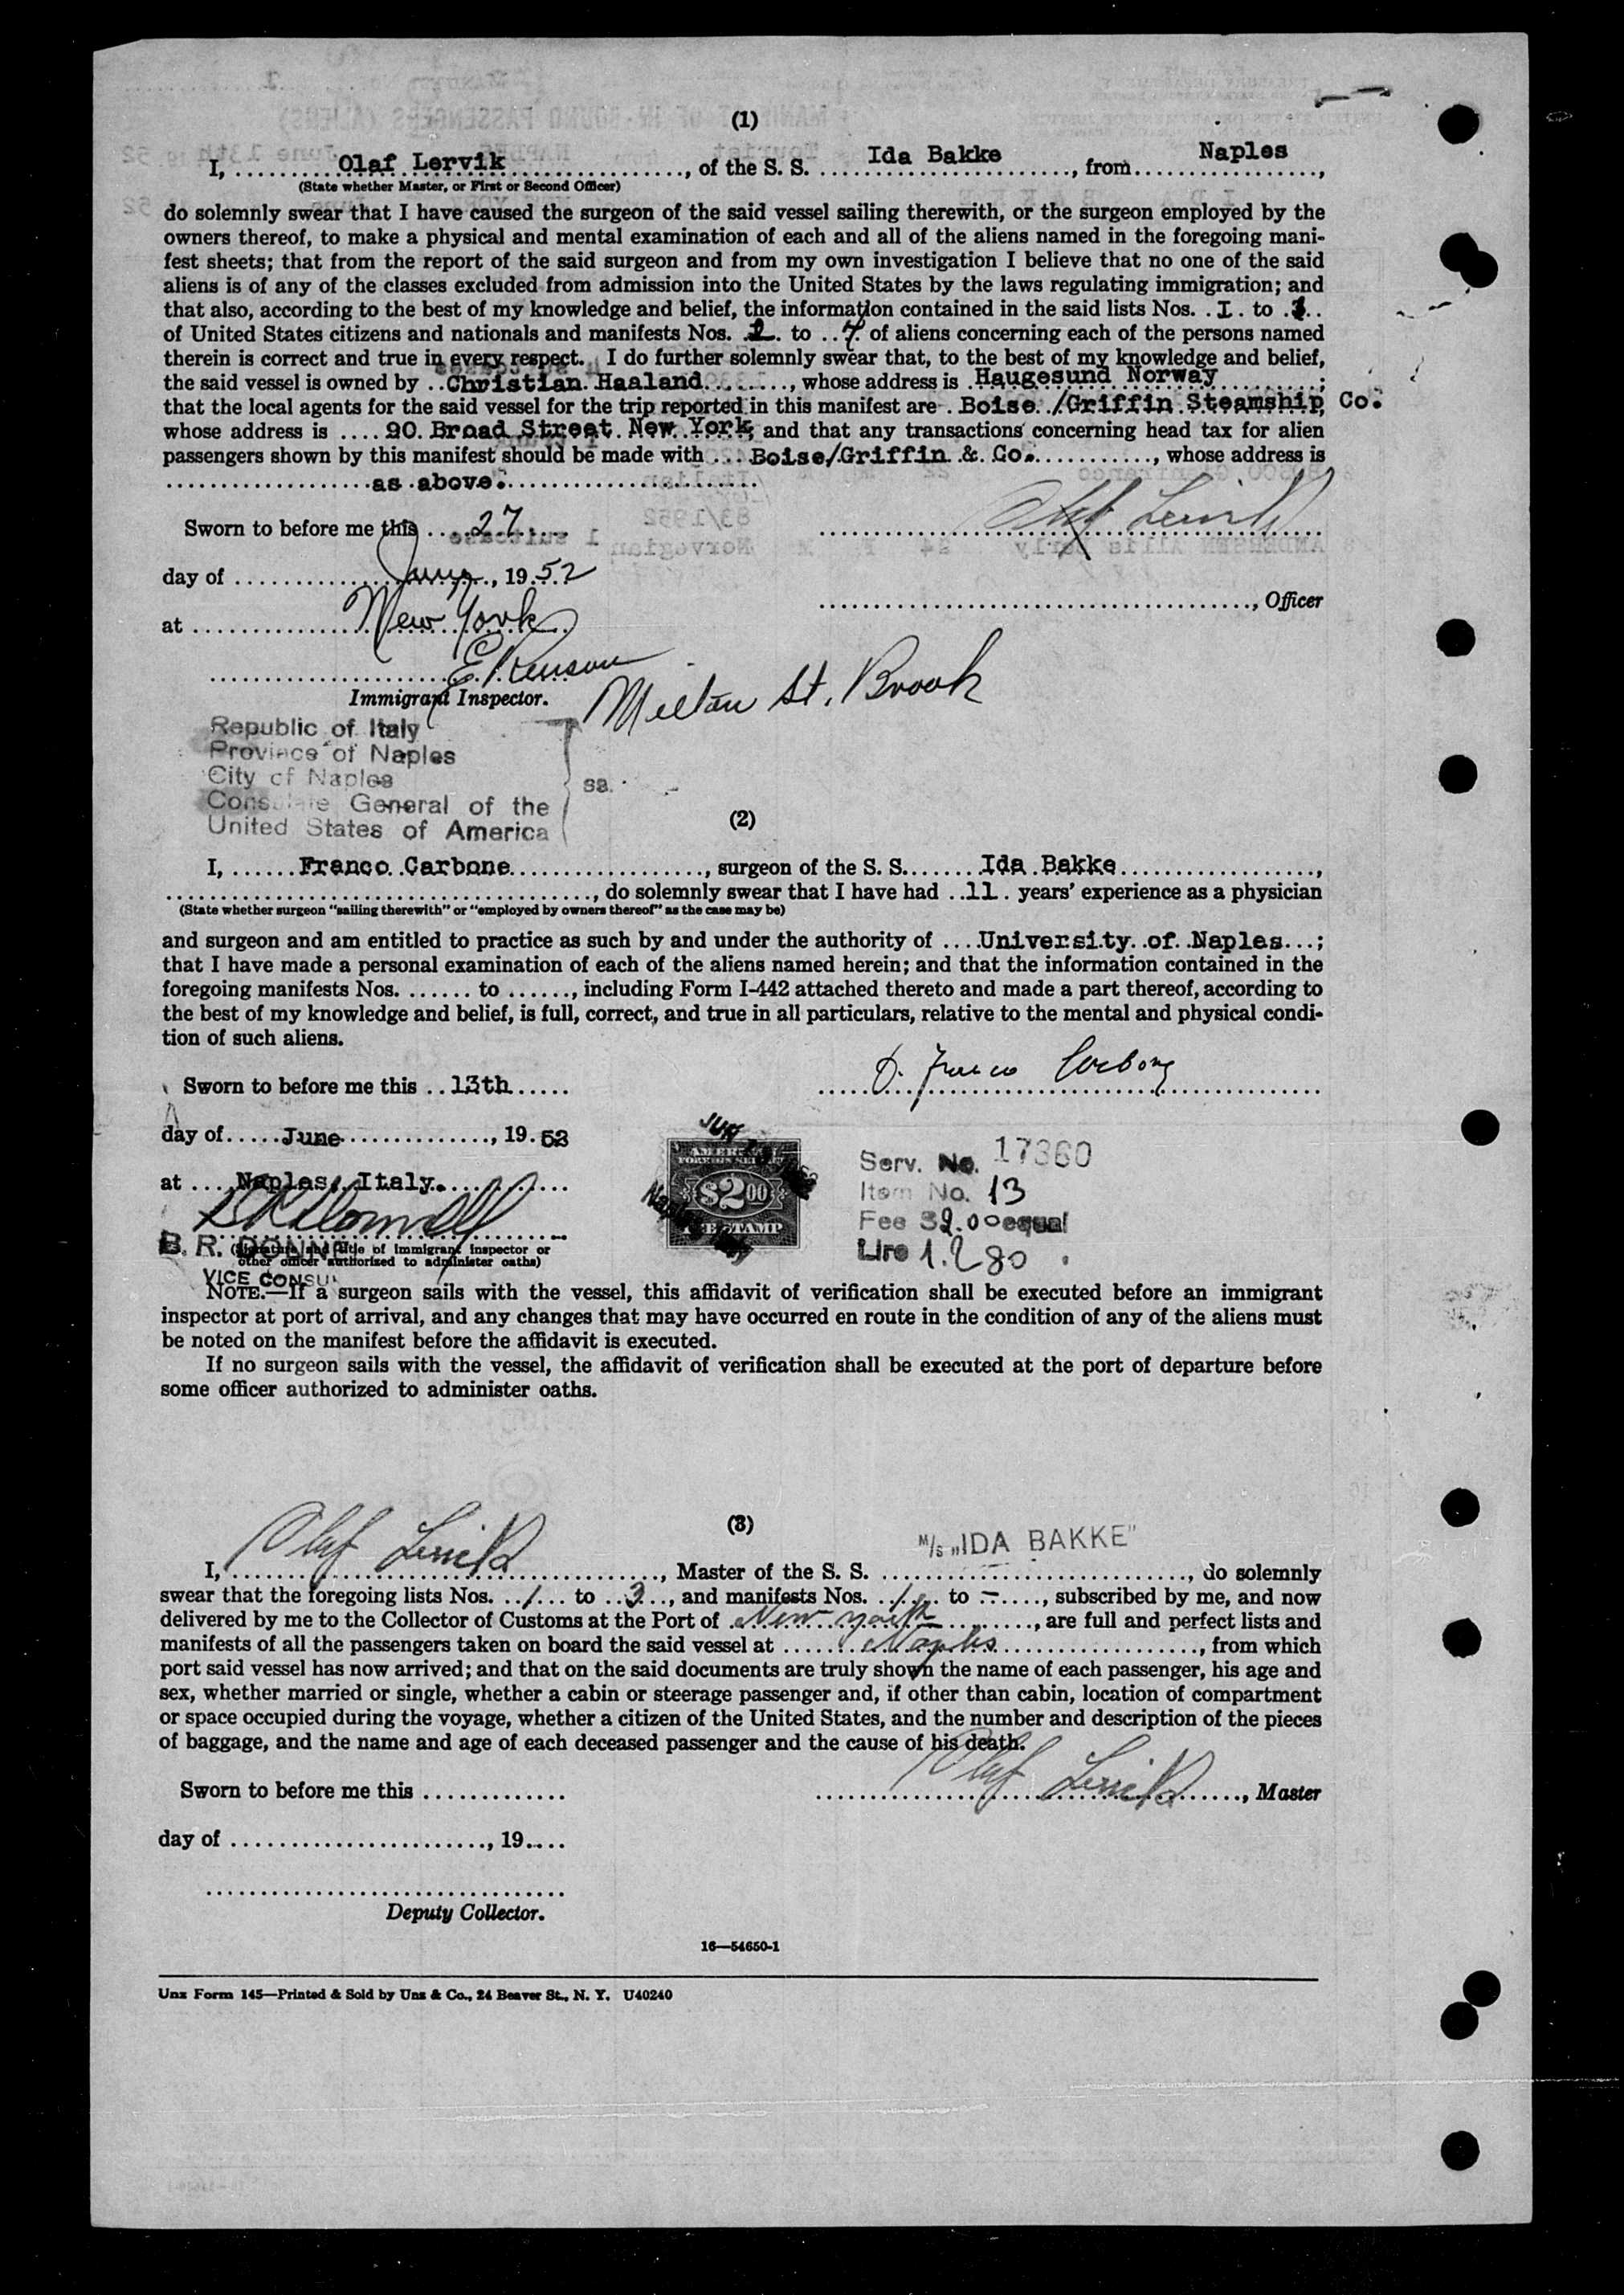 (1)
I, Olaf Lervik, of the S. S. Ida Bakke, from Naples,
(State whether Master, or First or Second Officer)
do solemnly swear that I have caused the surgeon of the said vessel sailing therewith, or the surgeon employed by the
owners thereof, to make a physical and mental examination of each and all of the aliens named in the foregoing mani-
fest sheets; that from the report of the said surgeon and from my own investigation I believe that no one of the said
aliens is of any of the classes excluded from admission into the United States by the laws regulating immigration; and
that also, according to the best of my knowledge and belief, the information contained in the said lists Nos. I to
of United States citizens and nationals and manifests Nos. to of aliens concerning each of the persons named
therein is correct and true in every respect. I do further solemnly swear that, to the best of my knowledge and belief,
the said vessel is owned by Christian Haaland, whose address is Haugesund Norway;
that the local agents for the said vessel for the trip reported in this manifest are Boise /Griffin Steamship Co.
whose address is 90 Broad Street New York, and that any transactions concerning head tax for alien
passengers shown by this manifest should be made with Boise/Griffin & Co., whose address is
as above.
Sworn to before me this 27 Olaf Lervik
day of June, 1952
, Officer
at New York
Immigrant Inspector.
Republic of Italy
Province of Naples
City of Naples ss.
Consulate General of the
United States of America
(2)
I, Franco Carbone, surgeon of the S. S. Ida Bakke,
, do solemnly swear that I have had 11 years' experience as a physician
(State whether surgeon "sailing therewith" or "employed by owners thereof" as the case may be)
and surgeon and am entitled to practice as such by and under the authority of University of Naples;
that I have made a personal examination of each of the aliens named herein; and that the information contained in the
foregoing manifests Nos. to , including Form I-442 attached thereto and made a part thereof, according to
the best of my knowledge and belief, is full, correct, and true in all particulars, relative to the mental and physical condi-
tion of such aliens.
Sworn to before me this 13th D. Franco Carbone
day of June, 19 52
at Naples, Italy.
AMERICAN
FOREIGN SERVICE
$2.00
FEE STAMP
Serv. No. 17360
Item No. 13
Fee $2.00 equal
Lire 1.280
B. R.
(Signature and title of immigrant inspector or
other officer authorized to administer oaths)
VICE CONSUL
NOTE.—If a surgeon sails with the vessel, this affidavit of verification shall be executed before an immigrant
inspector at port of arrival, and any changes that may have occurred en route in the condition of any of the aliens must
be noted on the manifest before the affidavit is executed.
If no surgeon sails with the vessel, the affidavit of verification shall be executed at the port of departure before
some officer authorized to administer oaths.
(3)
I, Olaf Lervik, Master of the S. S. M/S „IDA BAKKE", do solemnly
swear that the foregoing lists Nos. 1 to 3, and manifests Nos. 1 to –, subscribed by me, and now
delivered by me to the Collector of Customs at the Port of New York, are full and perfect lists and
manifests of all the passengers taken on board the said vessel at Naples, from which
port said vessel has now arrived; and that on the said documents are truly shown the name of each passenger, his age and
sex, whether married or single, whether a cabin or steerage passenger and, if other than cabin, location of compartment
or space occupied during the voyage, whether a citizen of the United States, and the number and description of the pieces
of baggage, and the name and age of each deceased passenger and the cause of his death.
Sworn to before me this Olaf Lervik, Master
day of , 19
Deputy Collector.
16—54650-1
Unz Form 145—Printed & Sold by Unz & Co., 24 Beaver St., N. Y. U40240